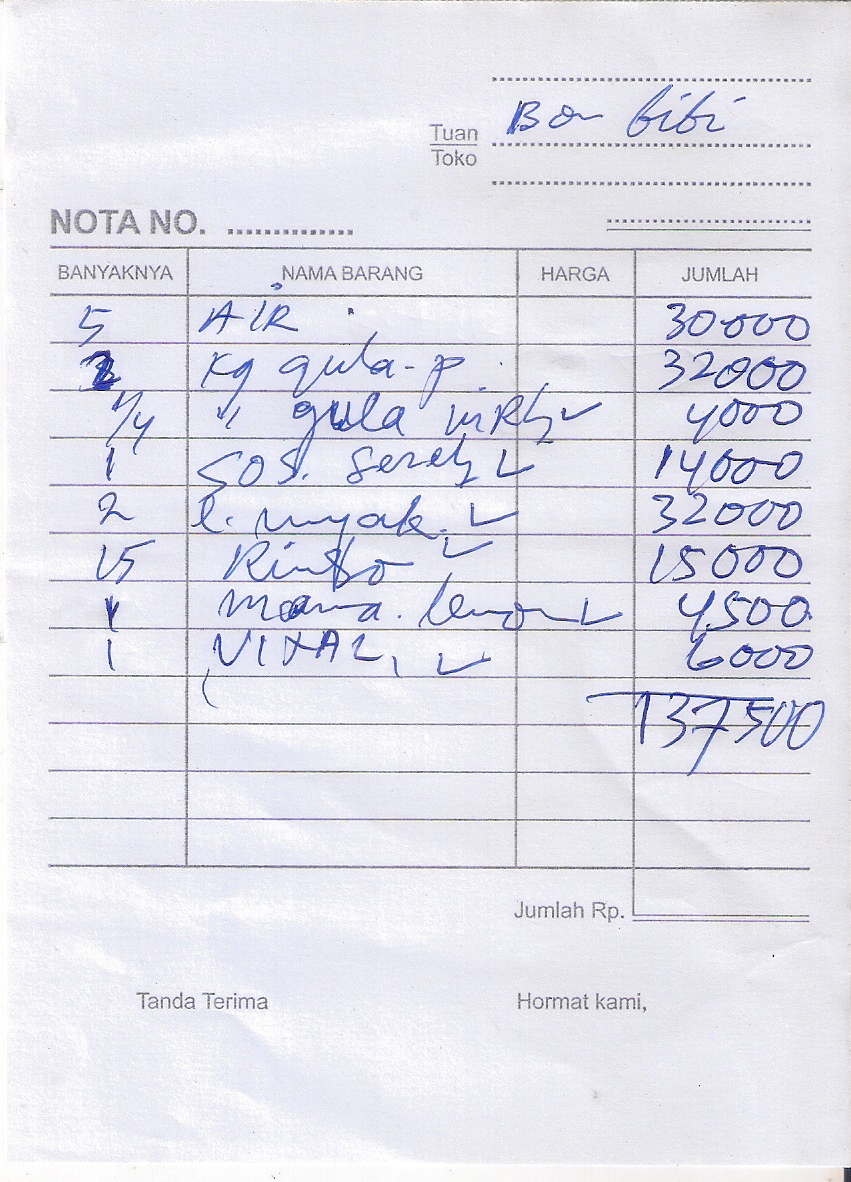 Bon bibi
Tuan
Toko
NOTA NO. ..............
BANYAKNYA NAMA BARANG HARGA JUMLAH
5 AIR 30000
2 Kg gula-p 32000
1/4 " gula mRh ✓ 4000
1 SOS. sereh ✓ 14000
2 l. myak ✓ 32000
15 Rinso ✓ 15000
1 mama. lemon ✓ 4500
1 VIXAL ✓ 6000
137500
Jumlah Rp.
Tanda Terima Hormat kami,